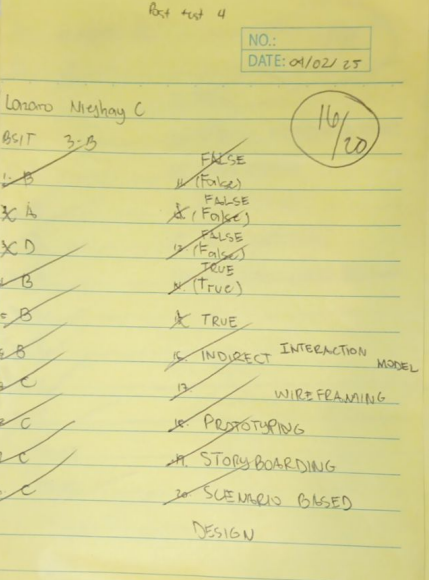 Post test 4
NO.:
DATE: 04/02/25
Lazaro Nieshay C
16/20
BSIT 3-B
1. B
X A
X D
B
B
B
C
C
C
C
FALSE
11. (False)
FALSE
(False)
FALSE
13. (False)
TRUE
14. (True)
TRUE
16. INDIRECT INTERACTION MODEL
17. WIREFRAMING
18. PROTOTYPING
19. STORYBOARDING
20. SCENARIO BASED
DESIGN